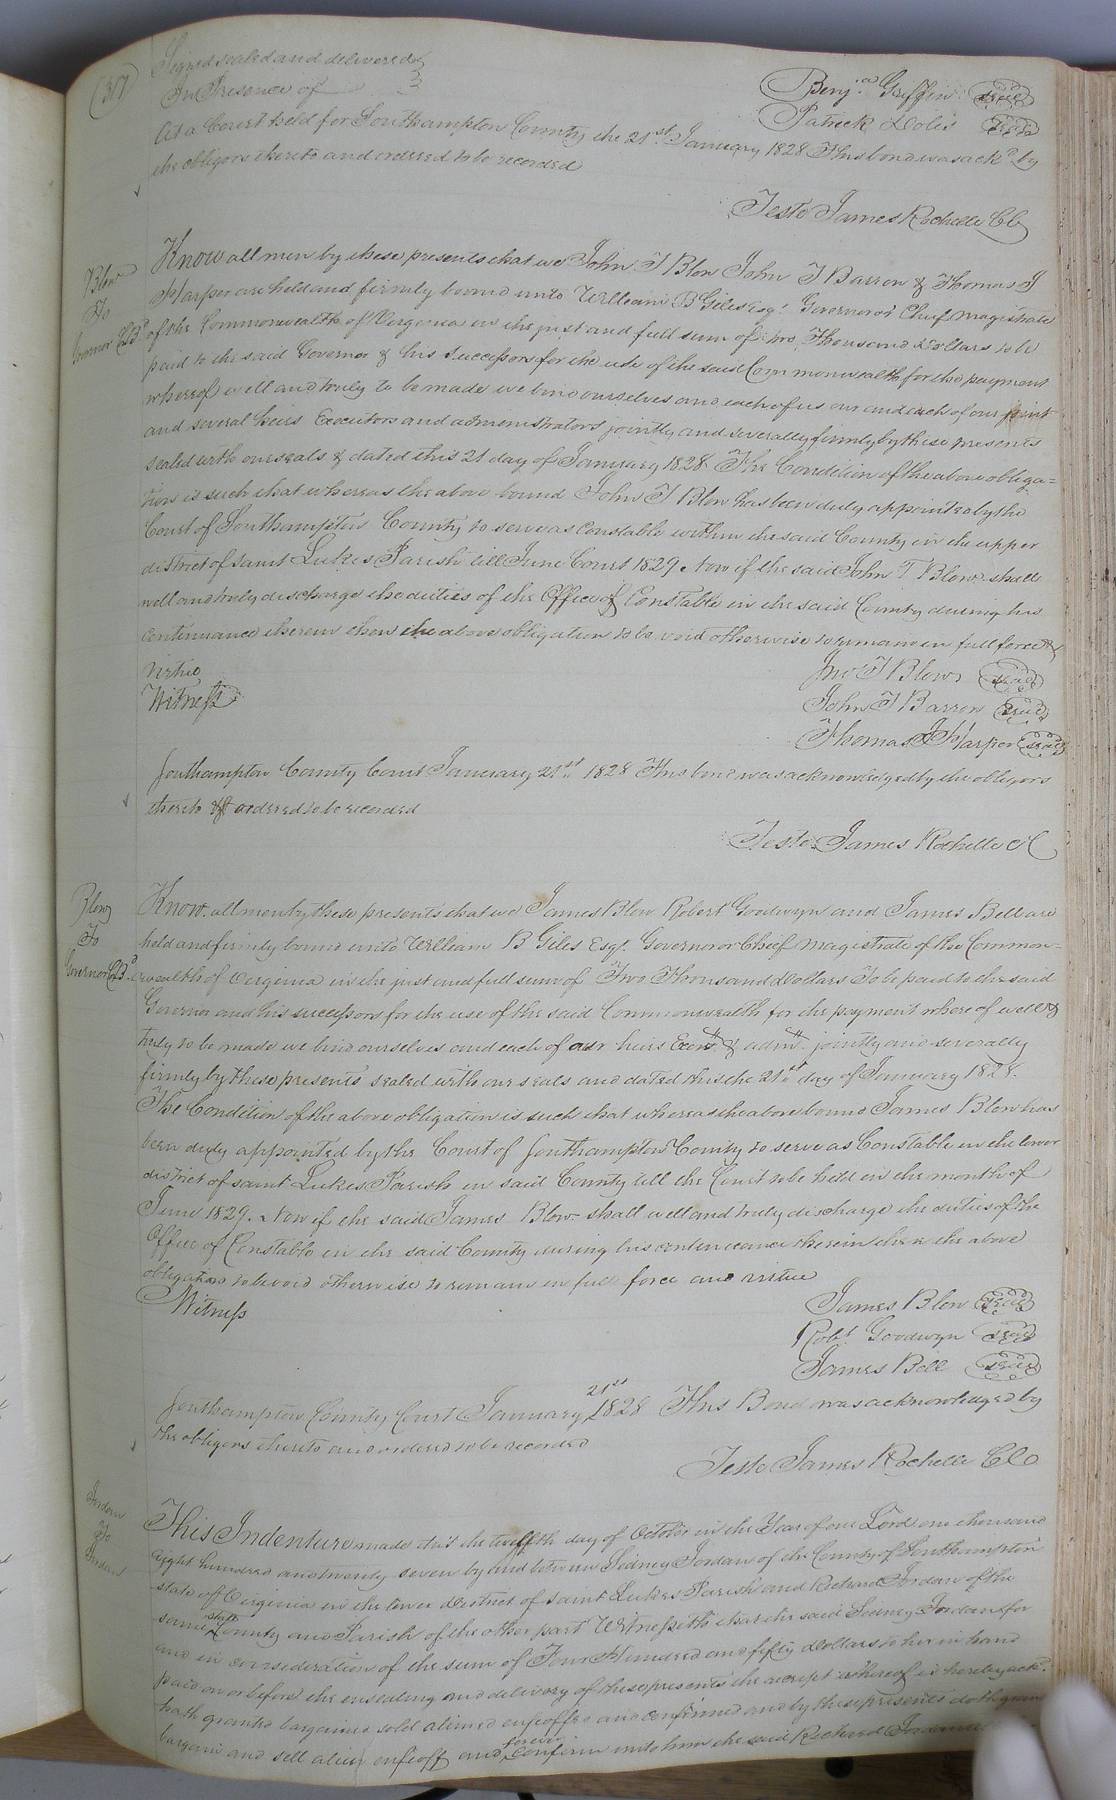 (317)
Signed sealed and delivered
In Presence of
Benj.a Griffin Seal
Patrick Doles Seal
At a Court held for Southampton County the 21st January 1828 This bond was ackd by
the obligors thereto and ordered to be recorded
Teste James Rochelle Clk
Blow
To
Governor &c Bd
Know all men by these presents that we John T Blow John T Barron & Thomas J
Harper are held and firmly bound unto William B Giles Esqr Governor or Chief magistrate
of the Commonwealth of Virginia in the just and full sum of two Thousand Dollars to be
paid to the said Governor & his Successors for the use of the said Commonwealth for the payment
whereof well and truly to be made we bind ourselves and each of us our and each of our joint
and several heirs Executors and administrators jointly and severally firmly by these presents
sealed with our seals & dated this 21 day of January 1828 The Condition of the above obliga=
tion is such that whereas the above bound John T Blow has been duly appointed by the
Court of Southampton County to serve as Constable within the said County in the upper
district of saint Lukes Parish till June Court 1829 Now if the said John T Blow shall
well and truly discharge the duties of the Office of Constable in the said County during his
continuance therein then the above obligation to be void otherwise to remain in full force &
virtue
Witness
Jno T Blow Seal
John T Barron Seal
Thomas J Harper Seal
Southampton County Court January 21st 1828 This bond was acknowledged by the obligors
thereto & ordered to be recorded
Teste James Rochelle Cl
Blow
To
Governor &c Bd
Know all men by these presents that we James Blow Robert Goodwyn and James Bell are
held and firmly bound unto William B Giles Esqr. Governor or Chief magistrate of the Common=
wealth of Virginia in the just and full sum of Two Thousand Dollars To be paid to the said
Governor and his successors for the use of the said Commonwealth for the payment where of well &
truly to be made we bind ourselves and each of our heirs Exors & admrs jointly and severally
firmly by these presents sealed with our seals and dated this the 21st day of January 1828.
The Condition of the above obligation is such that whereas the above bound James Blow has
been duly appointed by the Court of Southampton County to serve as Constable in the lower
district of saint Lukes Parish in said County till the Court to be held in the month of
June 1829. Now if the said James Blow shall well and truly discharge the duties of the
Office of Constable in the said County during his continuance therein then the above
obligation to be void otherwise to remain in full force and virtue
Witness
James Blow Seal
Robt Goodwyn Seal
James Bell Seal
Southampton County Court January 21st 1828 This Bond was acknowledged by
the obligors thereto and ordered to be recorded
Teste James Rochelle Clk
Jordan
To
Jordan
This Indenture made this the twelfth day of October in the Year of our Lord one thousand
Eight hundred and twenty seven by and between Sidney Jordan of the County of Southampton
state of Virginia in the lower District of saint Lukes Parish and Richard Jordan of the
same State County and Parish of the other part Witnesseth that the said Sidney Jordan for
and in consideration of the sum of Four Hundred and fifty Dollars to her in hand
paid on or before the ensealing and delivery of these presents the receipt whereof is hereby ackd.
hath granted bargained sold aliened enfeoffed and confirmed and by these presents doth grant
bargain and sell alien enfeoff and forever Confirm unto him the said Richard Jordan